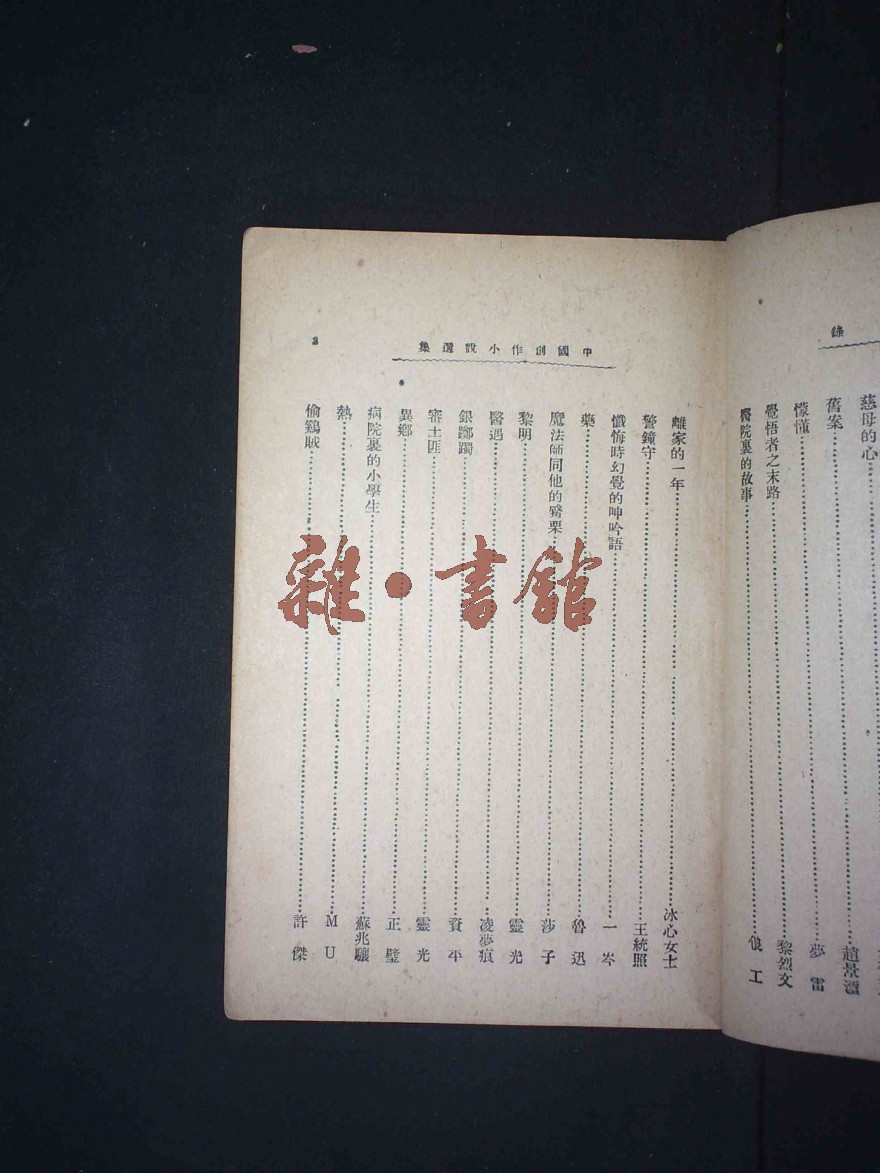 錄
慈母的心
舊案……趙景澐
懞懂……夢雷
覺悟者之末路……黎烈文
醫院裏的故事……俍工
中國創作小說選集
2
離家的一年……冰心女士
警鐘守……王統照
懺悔時幻覺的呻吟語……一岑
藥……魯迅
魔法師同他的觱栗……莎子
黎明……靈光
醫遇……凌夢痕
銀躑躅……資平
審土匪……靈光
異鄉……正璧
病院裏的小學生……蘇兆驤
熱……MU
偷鷄賊……許傑
雜·書館